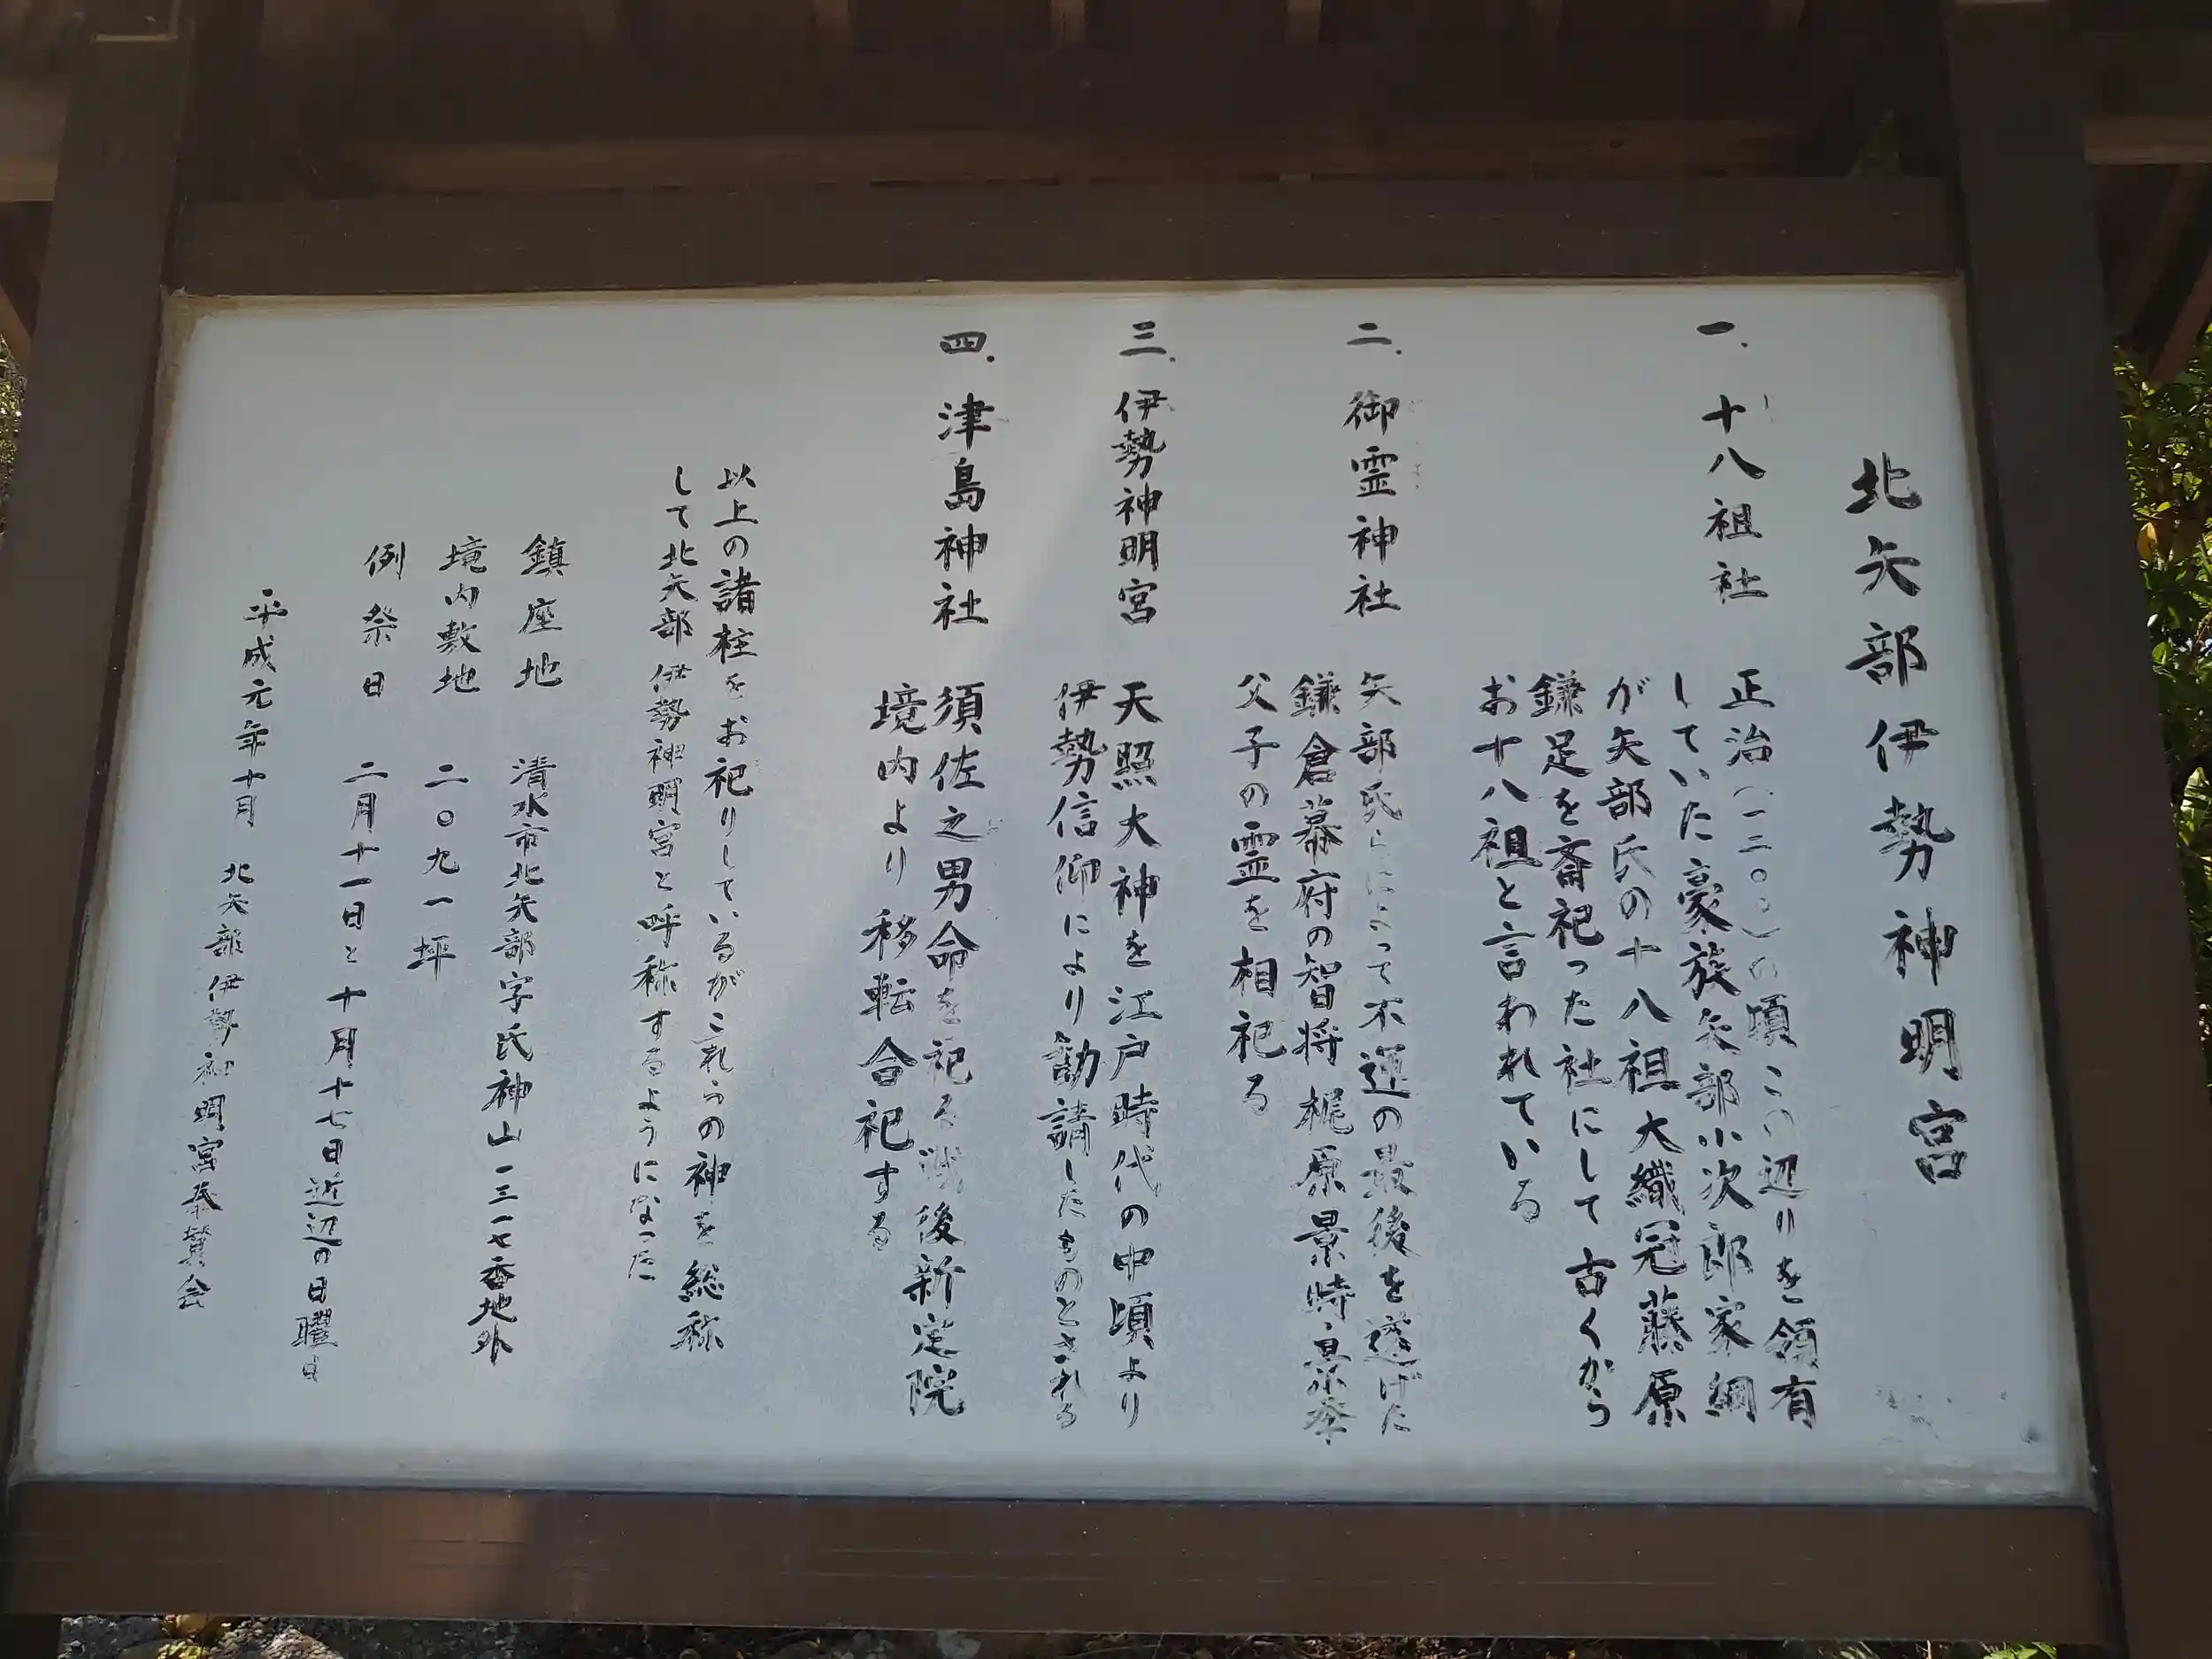 北矢部伊勢神明宮
一. 十八祖社 正治(一二〇〇)の頃この辺りを領有
していた豪族矢部小次郎家綱
が矢部氏の十八祖大織冠藤原
鎌足を斎祀った社にして古くから
お十八祖と言われている
二. 御霊神社 矢部氏らによって不運の最後を遂げた
鎌倉幕府の智将梶原景時、景季
父子の霊を相祀る
三. 伊勢神明宮 天照大神を江戸時代の中頃より
伊勢信仰により勧請したものとされる
四. 津島神社 須佐之男命を祀る戦後新定院
境内より移転合祀する
以上の諸柱をお祀りしているがこれらの神を総称
して北矢部伊勢神明宮と呼称するようになった
鎮座地 清水市北矢部字氏神山一三一七番地外
境内敷地 二〇九一坪
例祭日 二月十一日と十月十七日近辺の日曜日
平成元年十月 北矢部伊勢神明宮奉賛会